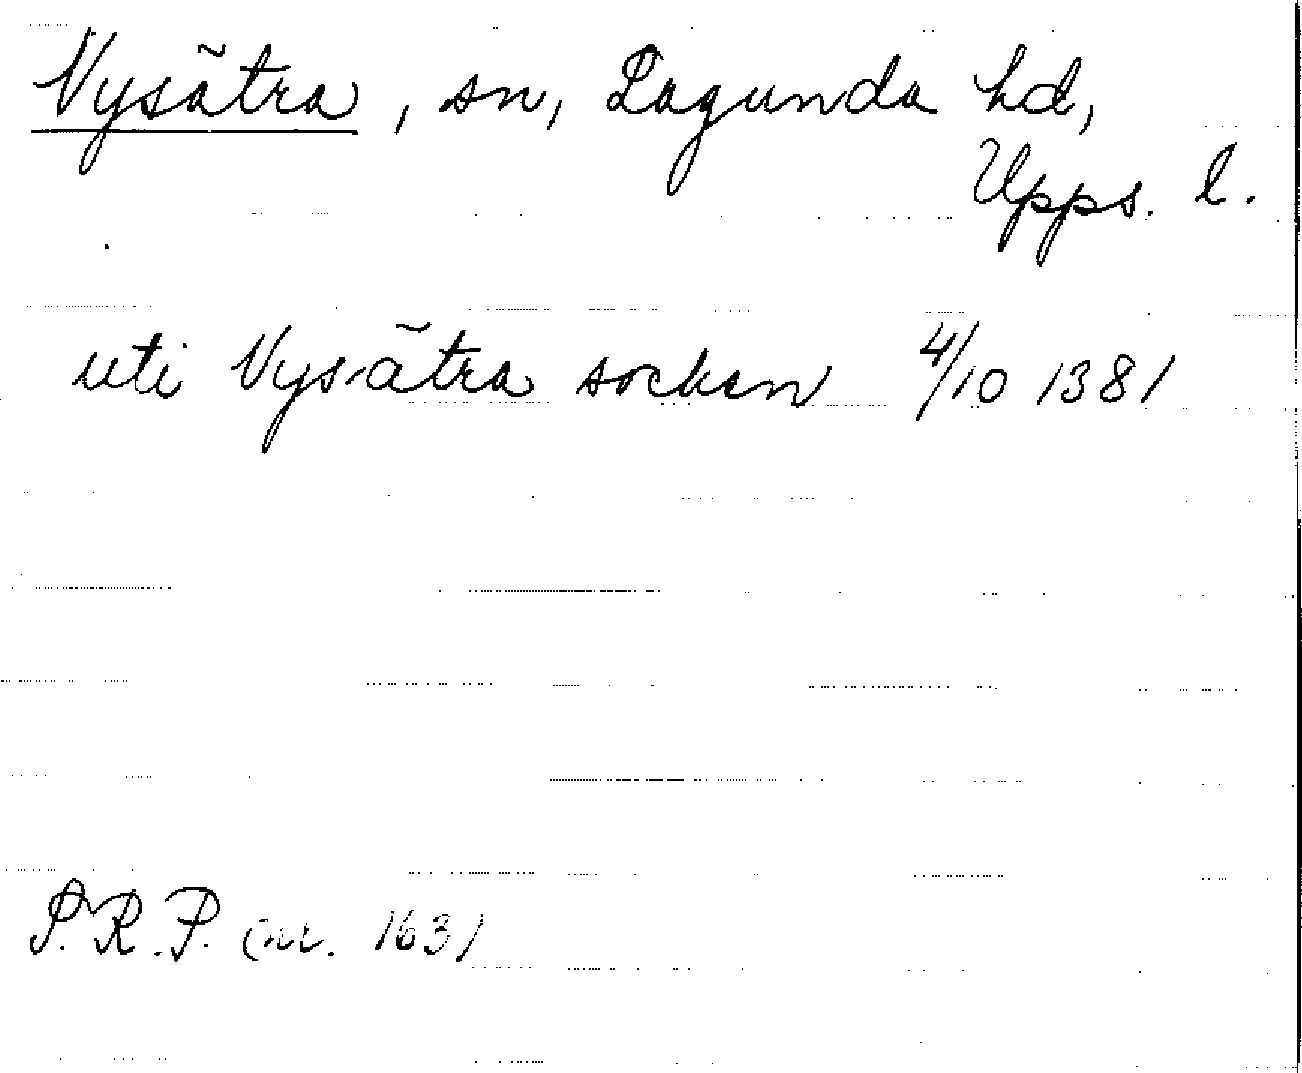 Nysätra, sn, Lagunda hd,
Upps. l.
uti Nysätra sockan 4/10 1381
S.R.P. (nr. 1631